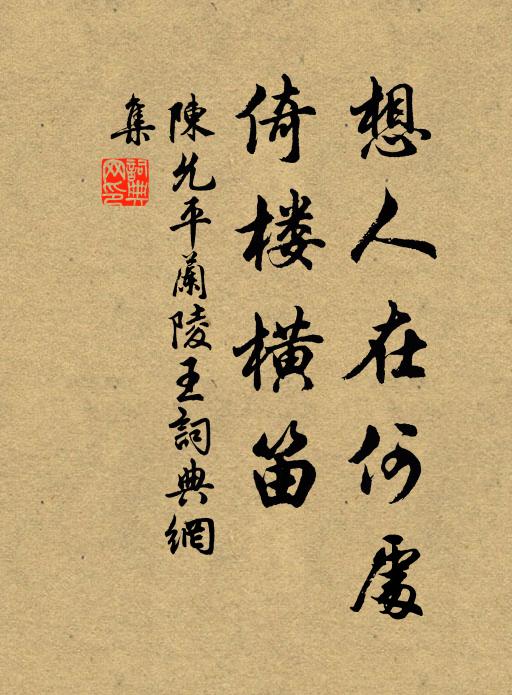 想人在何處
倚楼橫笛
陳允平蘭陵王詞典網
集
詞典网印